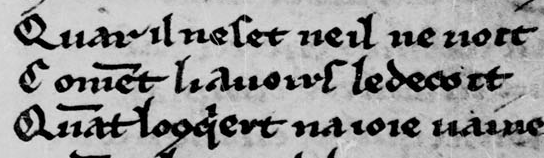 Quar il ne set ne il ne uoit
Coment li auoirs le decoit
Quãt lo ꝯq̄ert na ioie uaine